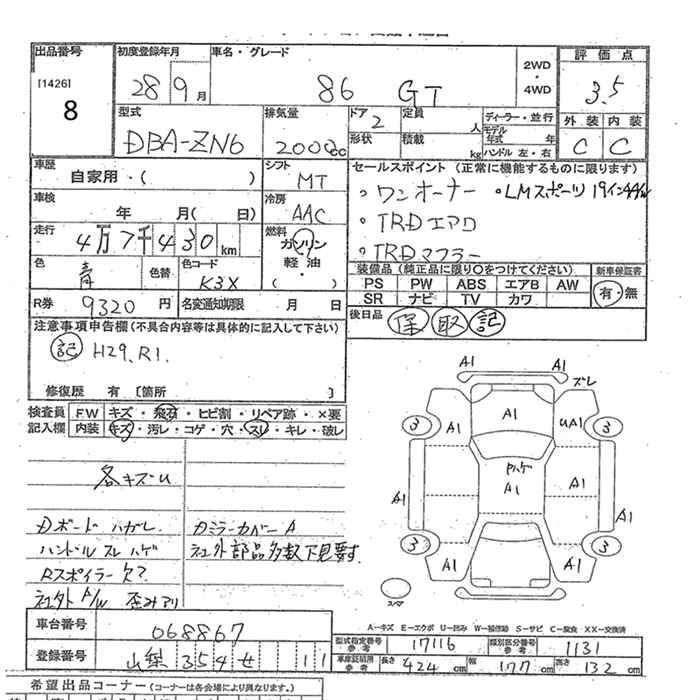 出品番号
[1426]
8
初度登録年月
28年 9月
車名・グレード
86 GT
2WD
・
4WD
評価点
3.5
外装 内装
C C
型式
DBA-ZN6
排気量
2000cc
ドア 2
形状
定員 人
積載 kg
ディーラー・並行
モデル年式 年
ハンドル 左・右
車歴
自家用・( )
シフト
MT
車検
年 月( 日)
冷房
AAC
走行
4万7千430km
燃料
ガソリン
軽油・
( )
色
青
色替
色コード
K3X
R券 9320円
名変通知期限 月 日
セールスポイント (正常に機能するものに限ります)
ワンオーナー
LMスポーツ 19インチAW
TRDエアロ
TRDマフラー
装備品(純正品に限り○をつけてください)
PS PW ABS エアB AW
SR ナビ TV カワ
新車保証書
有・無
後日品
保 取 記
注意事項申告欄(不具合内容等は具体的に記入して下さい)
記 H29. R1.
修復歴 有〔箇所 〕
検査員 FW キズ・飛石・ヒビ割・リペア跡・×要
記入欄 内装 キズ・汚レ・コゲ・穴・スレ・キレ・破レ
各キズu
Dボードハガレ
ハンドルスレハゲ
Rスポイラー欠?
社外A/W 歪みアリ
カミラーカバーA
社外部品多数下見要す.
A1 A1
ズレ
3 A1 A1 UA1 3
Pハゲ
A1 A1 A1 A1
3 A1 A1 3
スペア
A-キズ E-エクボ U-凹み W-補修跡 S-サビ C-腐食 XX-交換済
車台番号 068867
登録番号 山梨 354 せ 11
型式指定番号 参考 17116
類別区分番号 参考 1131
車庫証明用 参考 長さ 424cm 幅 177cm 高さ 132cm
希望出品コーナー(コーナーは各会場により異なります)